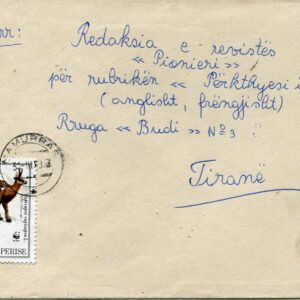 Për:
Redaksia e revistës
« Pionieri »
për rubrikën « Përkthyesi i
(anglisht, frëngjisht)
Rruga « Budi » Nº 3
Tiranë
MAMURRAS